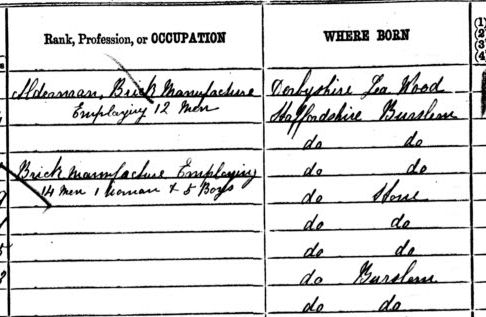 Rank, Profession, or OCCUPATION WHERE BORN
Alderman, Brick Manufacture Derbyshire Lea Wood
Employing 12 Men Staffordshire Burslem
do do
do do
Brick Manufacture Employing
14 Men 1 Woman & 5 Boys do Stone
do do
do do
do Burslem
do do